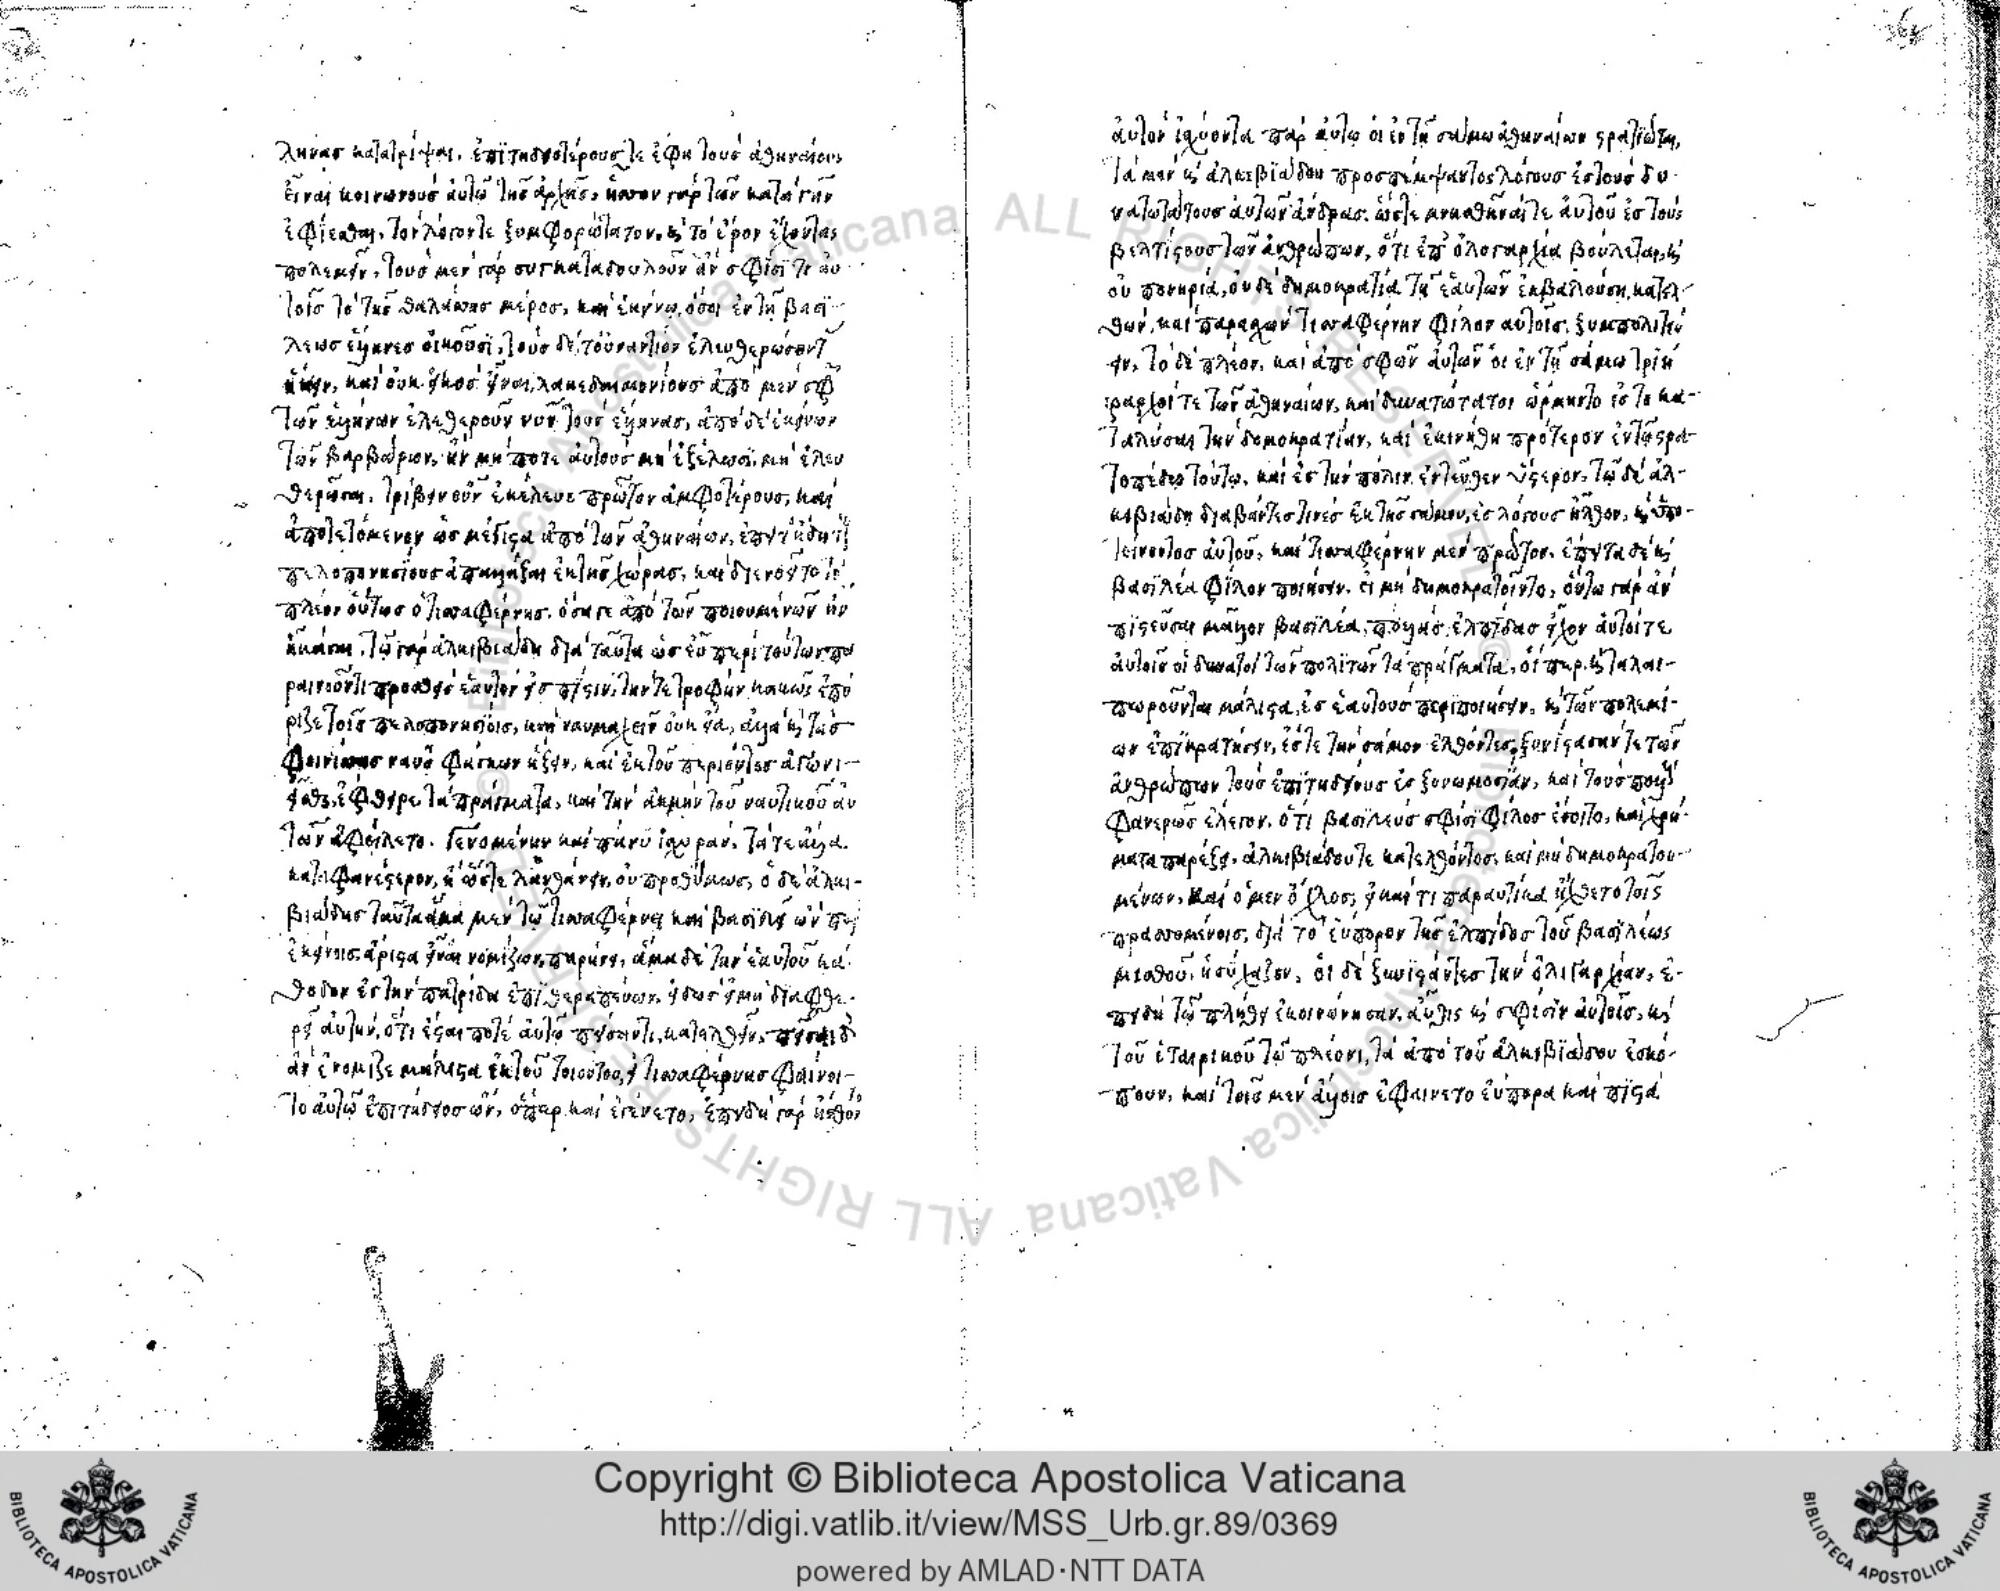 λῆνας κατατρίψαι. ἐπιτηδειοτέρους τε ἔφη τοὺς ἀθηναίους
εἶναι κοινωνοὺς αὐτῶ τῆς ἀρχῆς, ἧσσον γὰρ τῶν κατὰ γῆν
ἐφίεσθαι, τὸν λόγον τε ξυμφορώτατον, καὶ τὸ ἔργον ἔχοντας
πολεμεῖν, τοὺς μὲν γὰρ συγκαταδουλοῦν ἂν σφίσι τε αὐ
τοῖς τὸ τῆς θαλάσσης μέρος, καὶ ἐκείνω, ὅσοι ἐν τῆ βασι
λέως ἕλληνες οἰκοῦσι, τοὺς δὲ, τοὐναντίον ἐλευθερώσοντ
ἥκειν, καὶ οὐκ εἰκὸς εἶναι, λακεδαιμονίους ἀπὸ μὲν σφ
τῶν ἑλλήνων ἐλεθεροῦν νῦν τοὺς ἕλληνας, ἀπὸ δ' ἐκείνων
τῶν βαρβάρων, ἢν μή ποτε αὐτοὺς μὴ ἐξέλωσι, μὴ ἐλευ
θερῶσαι. τρίβειν οὖν ἐκέλευε πρῶτον ἀμφοτέρους, καὶ
ἀποτεμόμενον ὡς μέγιστα ἀπὸ τῶν ἀθηναίων, ἔπειτ' ἤδη τοὺς
πελοποννησίους ἀπαλλάξαι ἐκ τῆς χώρας, καὶ διενοεῖτο τὸ
πλέον οὕτως ὁ τισσαφέρνης. ὅσα γε ἀπὸ τῶν ποιουμένων ἦν
εἰκάσαι, τῶ γὰρ ἀλκιβιάδη διὰ ταῦτα ὡς εὖ περὶ τούτων πα
ραινοῦντι προσθεὶς ἑαυτὸν ἐς πίστιν, τήν τε τροφὴν κακῶς ἐπό
ριζε τοῖς πελοποννησίοις, καὶ ναυμαχεῖν οὐκ εἴα, ἀλλὰ καὶ τὰς
φοινίσσας ναῦς φάσκων ἥξειν, καὶ ἐκ τοῦ περιόντος ἀγωνι-
εῖσθαι, ἔφθειρε τὰ πράγματα, καὶ τὴν ἀκμὴν τοῦ ναυτικοῦ αὐ
τῶν ἀφείλετο. γενομένην καὶ πάνυ ἰσχυράν, τά τε ἄλλα
καταφανέστερον, ἢ ὥστε λανθάνειν, οὐ προθύμως, ὁ δὲ ἀλκι-
βιάδης ταῦτα ἅμα μὲν τῶ τισσαφέρνει καὶ βασιλεῖ ὢν παρ
ἐκείνοις, ἄριστα εἶναι νομίζων, παρήνει, ἅμα δὲ τὴν ἑαυτοῦ κά
θοδον ἐς τὴν πατρίδα ἐπιθεραπεύων, εἰδὼς εἰ μὴ διαφθε-
ρεῖ αὐτήν, ὅτι ἔσται ποτὲ αὐτῶ πείσαντι, κατελθεῖν, πεῖσαι δ
ἂν ἐνόμιζε μάλιστα ἐκ τοῦ τοιούτου, εἰ τισσαφέρνης φαίνοι-
το αὐτῶ ἐπιτήδειος ὤν, ὅπερ καὶ ἐγένετο, ἐπειδὴ γὰρ ἤσθοντ
αὐτὸν ἰσχύοντα παρ αὐτῶ οἱ ἐν τῆ σάμω ἀθηναίων στρατιῶται,
τὰ μὲν καὶ ἀλκιβιάδου προσπέμψαντος λόγους ἐς τοὺς δυ
νατωτάτους αὐτῶν ἄνδρας. ὥστε μνησθῆναί τε αὐτοῦ ἐς τοὺς
βελτίστους τῶν ἀνθρώπων, ὅτι ἐπ' ὀλιγαρχία βούλεται, καὶ
οὐ πονηρία, οὐδὲ δημοκρατία τῆ ἑαυτὸν ἐκβαλούση, κατελ-
θὼν, καὶ παρασχὼν τισσαφέρνην φίλον αὐτοῖς, ξυμπολιτεύ
ειν, τὸ δὲ πλέον, καὶ ἀπὸ σφῶν αὐτῶν οἱ ἐν τῆ σάμω τριη
ραρχοί τε τῶν ἀθηναίων, καὶ δυνατώτατοι ὥρμηντο ἐς τὸ κα-
ταλύσαι τὴν δημοκρατίαν, καὶ ἐκινήθη πρότερον ἐν τῶ στρα
τοπέδω τούτω, καὶ ἐς τὴν πόλιν ἐντεῦθεν ὕστερον, τῶ δὲ ἀλ-
κιβιάδη διαβάντες τινὲς ἐκ τῆς σάμου, ἐς λόγους ἦλθον, καὶ ὑπο-
τείνοντος αὐτοῦ, καὶ τισσαφέρνην μὲν πρῶτον. ἔπειτα δὲ καὶ
βασιλέα φίλον ποιήσειν. εἰ μὴ δημοκρατοῖντο, οὕτω γὰρ ἂν
πιστεῦσαι μᾶλλον βασιλέα, πολλὰς ἐλπίδας εἶχον αὐτοί τε
αὑτοῖς οἱ δυνατοὶ τῶν πολιτῶν τὰ πράγματα, οἵπερ, καὶ ταλαι-
πωροῦνται μάλιστα, ἐς ἑαυτοὺς περιποιήσειν, καὶ τῶν πολεμί-
ων ἐπικρατήσειν, ἔς τε τὴν σάμον ἐλθόντες, ξυνίστασάν τε τῶν
ἀνθρώπων τοὺς ἐπιτηδείους ἐς ξυνωμοσίαν, καὶ τοὺς πολλοὺς
φανερῶς ἔλεγον, ὅτι βασιλεὺς σφίσι φίλος ἔσοιτο, καὶ χρή-
ματα παρέξει, ἀλκιβιάδου τε κατελθόντος, καὶ μὴ δημοκρατου-
μένων, καὶ ὁ μὲν ὄχλος, εἰ καί τι παραυτίκα ἤχθετο τοῖς
πρασσομένοις, διὰ τὸ εὔπορον τῆς ἐλπίδος τοῦ βασιλέως
μισθοῦ, ἡσύχαζεν, οἱ δὲ ξυνιστάντες τὴν ὀλιγαρχίαν, ἐ-
πειδὴ τῶ πλήθει ἐκοινώνησαν, αὖθις καὶ σφίσιν αὐτοῖς, καὶ
τοῦ ἑταιρικοῦ τῶ πλέονι, τὰ ἀπὸ τοῦ ἀλκιβιάδου ἐσκό-
πουν, καὶ τοῖς μὲν ἄλλοις ἐφαίνετο εὔπορα καὶ πιστά
Copyright © Biblioteca Apostolica Vaticana
http://digi.vatlib.it/view/MSS_Urb.gr.89/0369
powered by AMLAD·NTT DATA
BIBLIOTECA APOSTOLICA VATICANA
BIBLIOTECA APOSTOLICA VATICANA
© Biblioteca Apostolica Vaticana ALL RIGHTS RESERVED
© Biblioteca Apostolica Vaticana ALL RIGHTS RESERVED